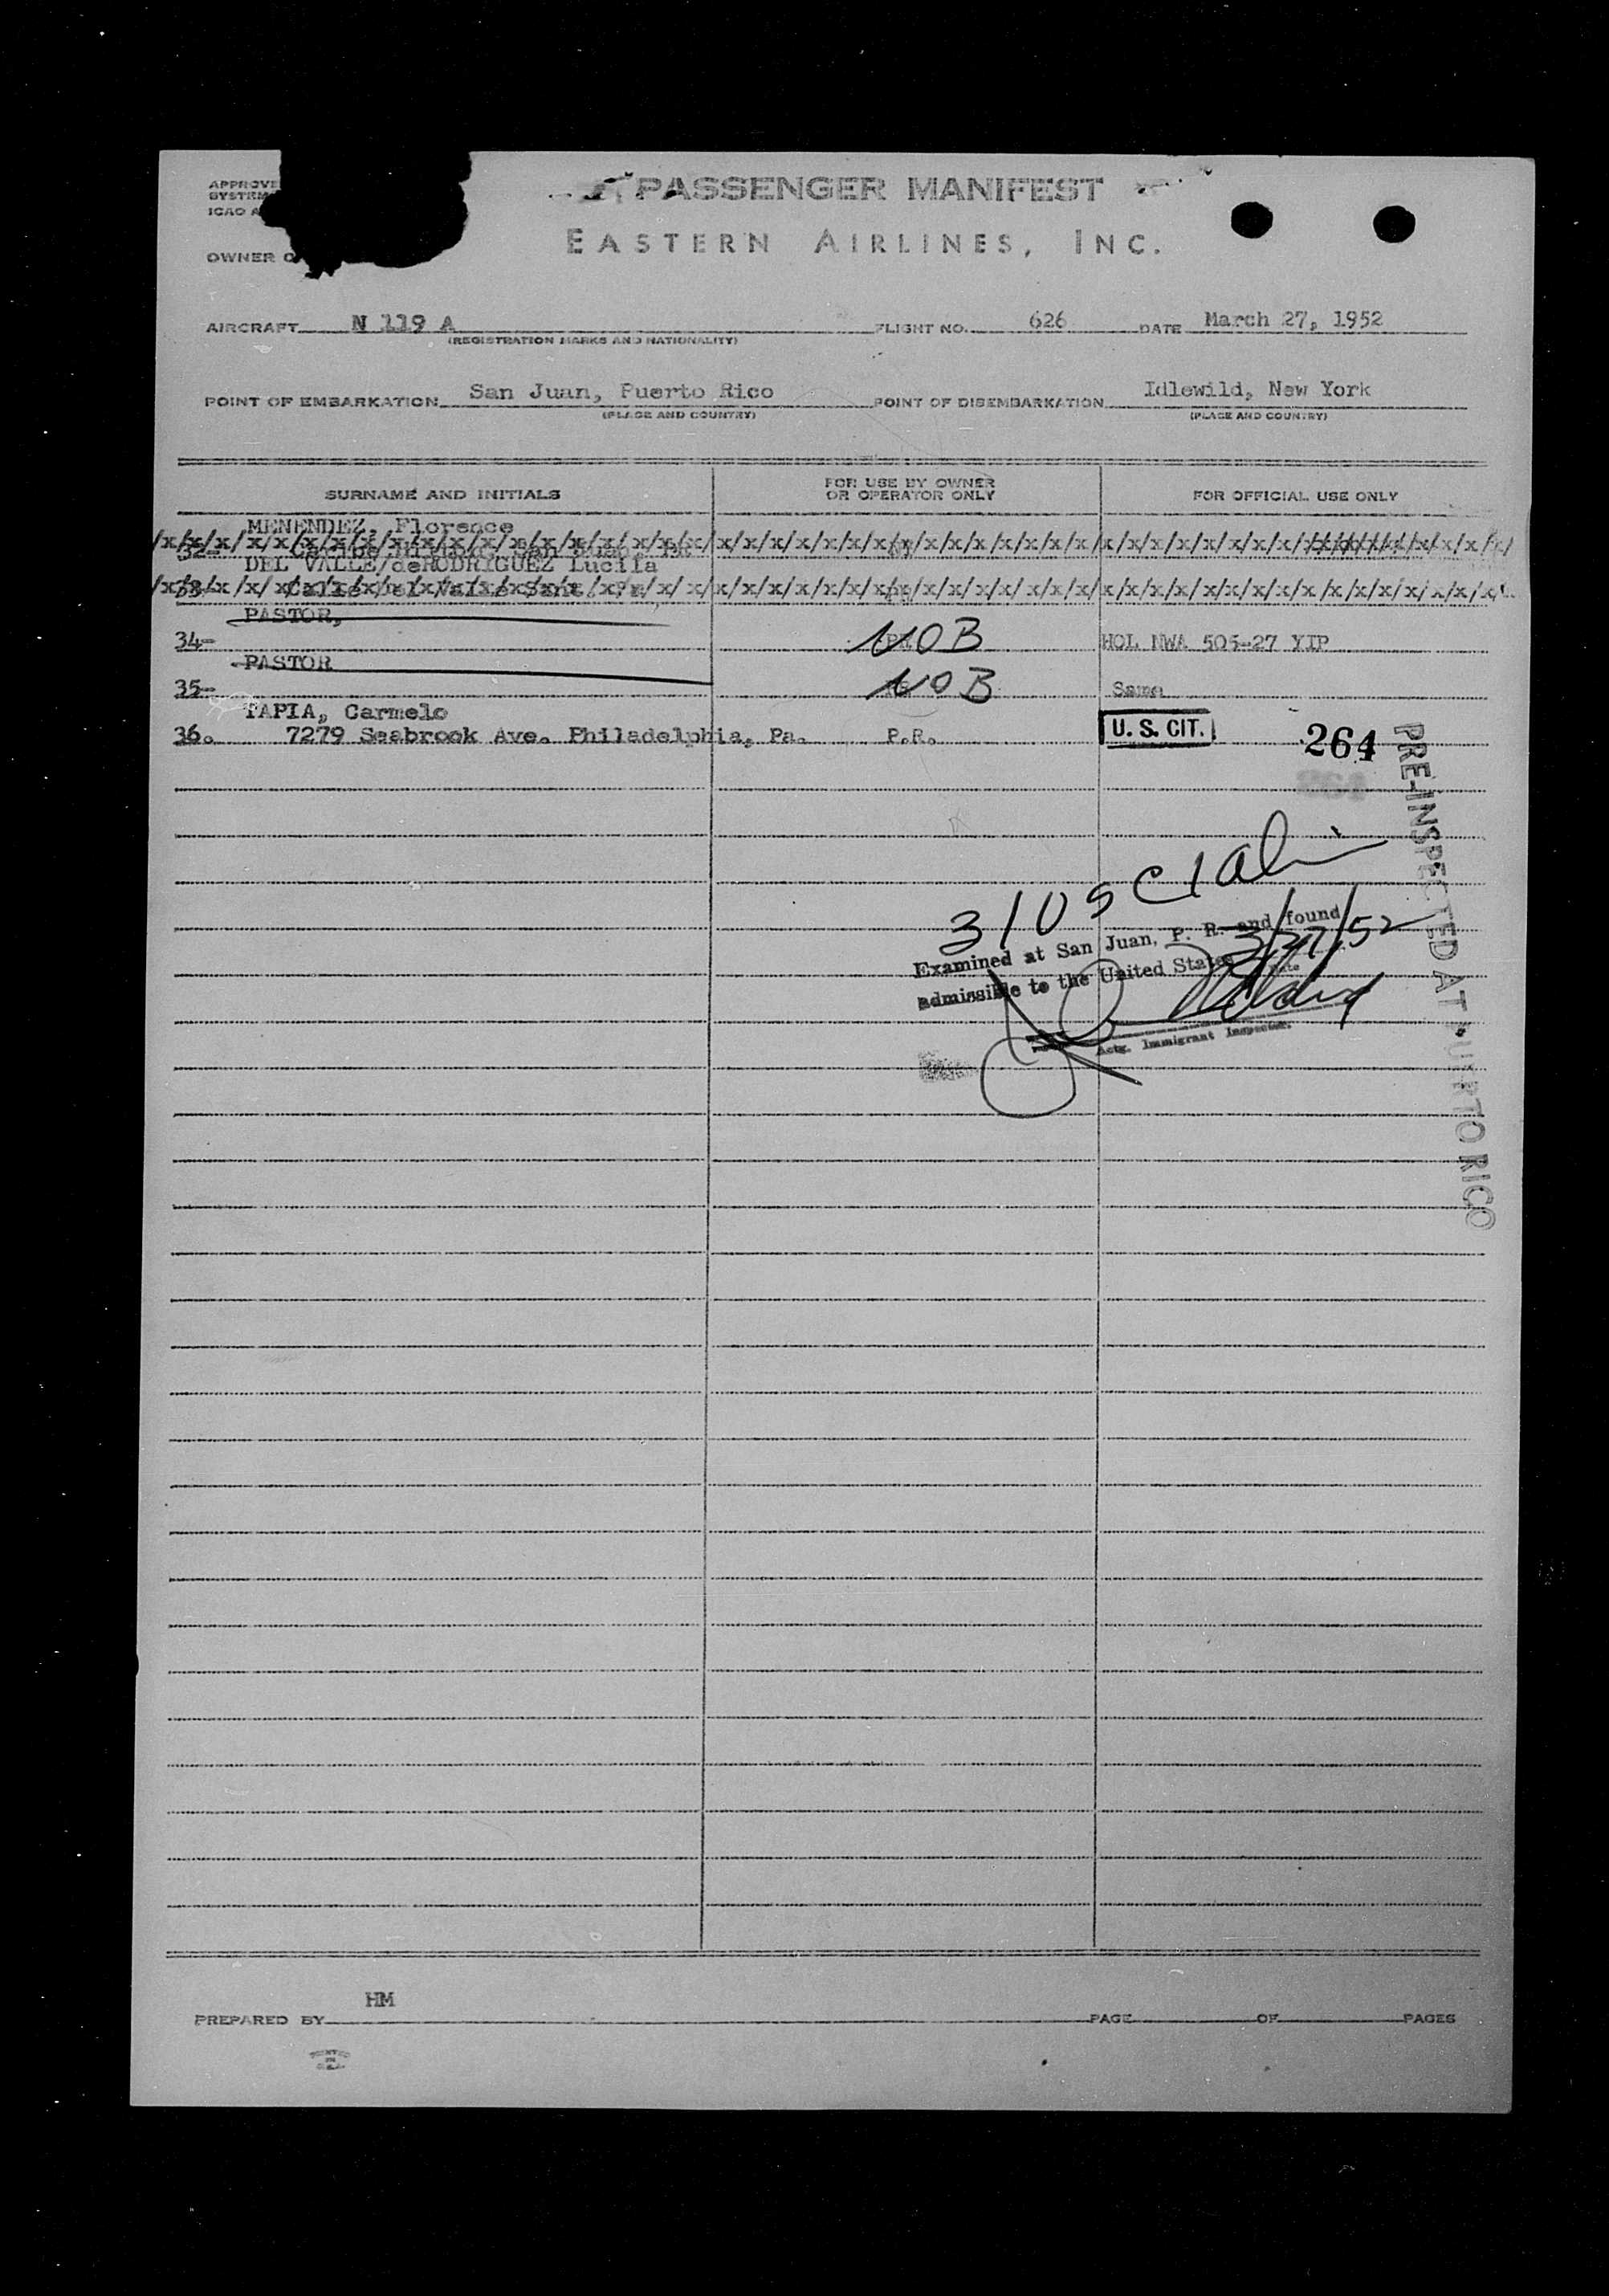 APPROVE
SYSTEM
ICAO A
PASSENGER MANIFEST
EASTERN AIRLINES, INC.
OWNER O
AIRCRAFT N 119 A FLIGHT NO. 626 DATE March 27, 1952
(REGISTRATION MARKS AND NATIONALITY)
POINT OF EMBARKATION San Juan, Puerto Rico POINT OF DISEMBARKATION Idlewild, New York
(PLACE AND COUNTRY) (PLACE AND COUNTRY)
SURNAME AND INITIALS FOR USE BY OWNER OR OPERATOR ONLY FOR OFFICIAL USE ONLY
MENENDEZ, Florence
32- Caribe Hilton, San Juan, PR
DEL VALLE/deRODRIGUEZ Lucila
33- Calle del Valle Sant.
PASTOR,
34- NOB HOL NWA 505-27 YIP
PASTOR
35- NOB Same
TAPIA, Carmelo
36. 7279 Seabrook Ave. Philadelphia, Pa. P.R. U. S. CIT. 264
PRE-INSPECTED AT PUERTO RICO
31 US C 1 al
3/27/52
Examined at San Juan, P. R. and found
admissible to the United States
Date
Actg. Immigrant Inspector.
HM
PREPARED BY PAGE OF PAGES
PRINTED
IN
U.S.A.